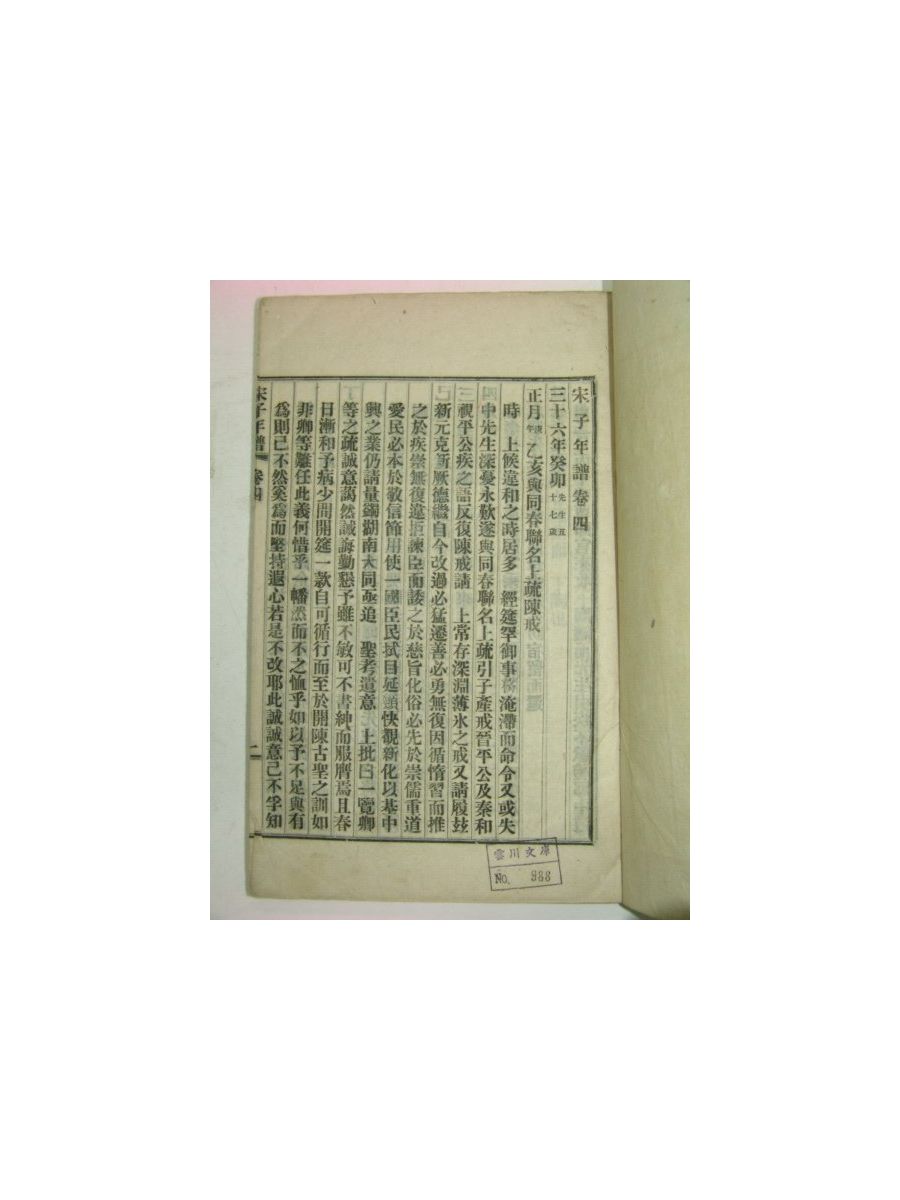 宋子年譜卷四
三十六年癸卯 先生五十七歲
正月 庚午 乙亥與同春聯名上疏陳戒
時 上候違和之時居多 經筵罕御事務淹滯而命令又或失
中先生深憂永歎遂與同春聯名上疏引子產戒晉平公及秦和
視平公疾之語反復陳戒請 上常存深淵薄氷之戒又請履玆
新元克新厥德繼自今改過必猛遷善必勇無復因循惰習而推
之於疾祟無復違拒諫臣而諉之於慈旨化俗必先於崇儒重道
愛民必本於敬信節用使一國臣民拭目延頸快覩新化以基中
興之業仍請量蠲湖南大同亟追 聖考遺意 上批曰一覽卿
等之疏誠意藹然誠誨勤懇予雖不敏可不書紳而服膺焉且春
日漸和予病少間開筵一款自可循行而至於開陳古聖之訓如
非卿等難任此義何惜乎一幡然而不之恤乎如以予不足與有
爲則已不然奚爲而堅持遐心若是不改耶此誠誠意已不孚知
宋子年譜 卷四 二
雲川文庫
No. 988